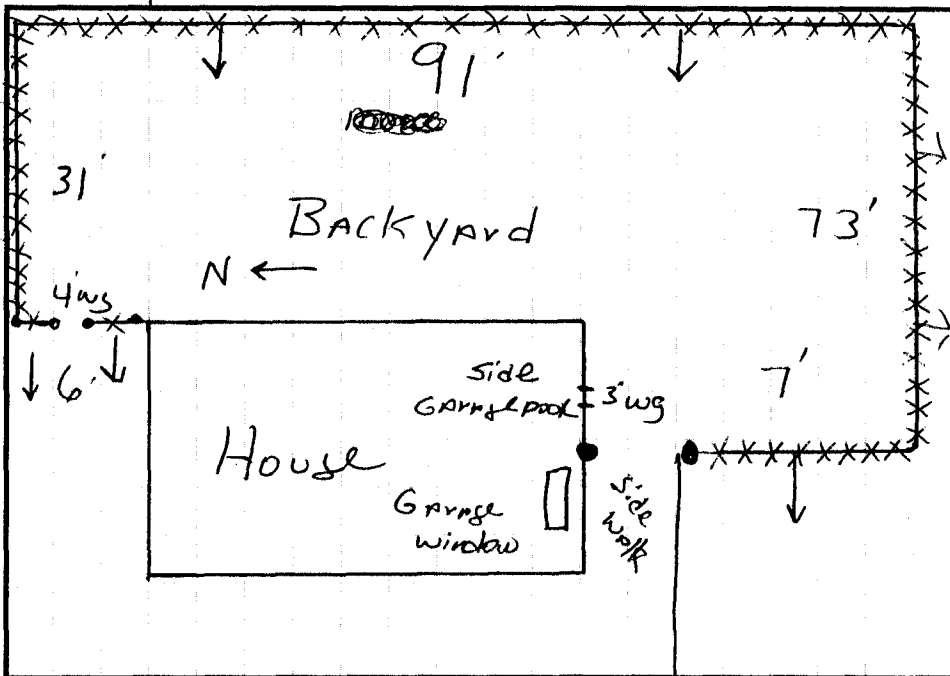 91'
31'
BACKyArd
73'
N
4'wg
6'
7'
side
GArAge Door
3'wg
House
GArAge
window
side
walk